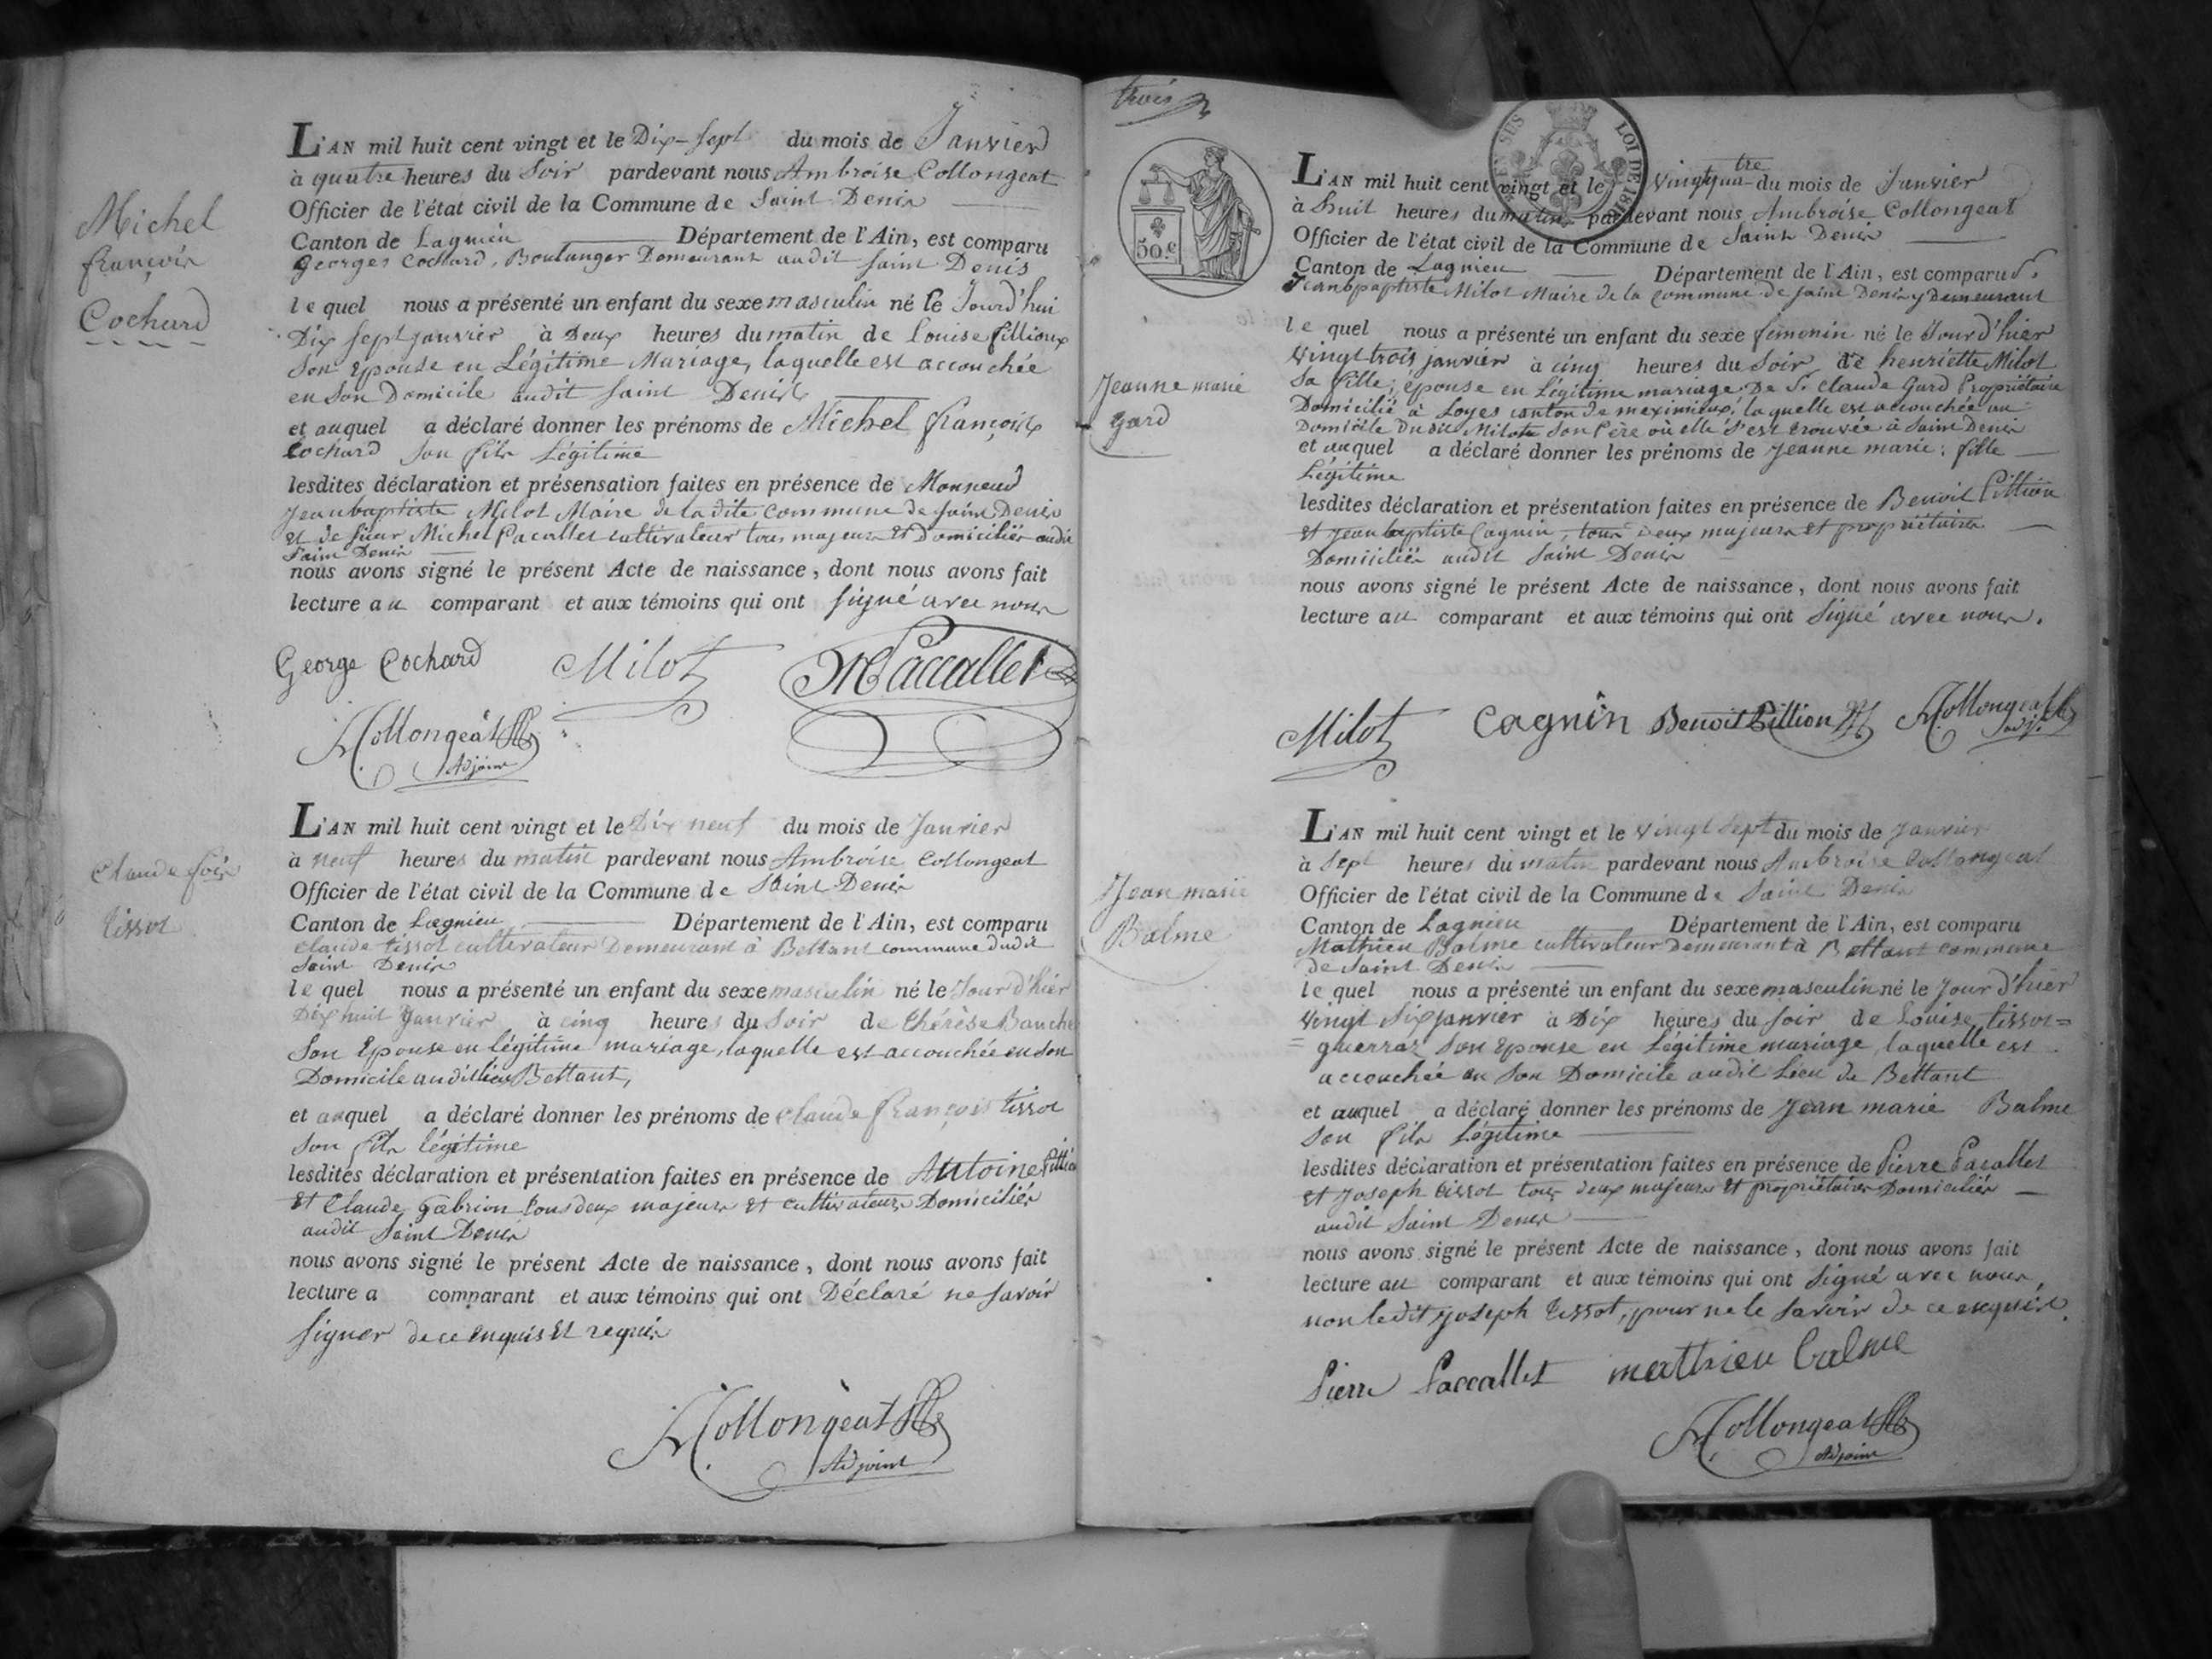 Michel
françois
Cochard
L'AN mil huit cent vingt et le Dix-sept du mois de Janvier
à quatre heures du Soir pardevant nous Ambroise Collongeat
Officier de l'état civil de la Commune de Saint Denis
Canton de Lagnieu Département de l'Ain, est comparu
Georges Cochard, Boulanger Demeurant audit Saint Denis
le quel nous a présenté un enfant du sexe masculin né le Jourd'hui
Dix sept janvier à Deux heures du matin de Louise fillioux
Son Epouse en Légitime Mariage, laquelle est accouchée
en Son Domicile audit Saint Denis
et auquel a déclaré donner les prénoms de Michel françois
Cochard Son fils Légitime
lesdites déclaration et présensation faites en présence de Monsieur
Jeanbaptiste Milot Maire de ladite Commune de Saint Denis
et de Sieur Michel Pacallet cultivateur tous majeurs et domiciliés audit
Saint Denis
nous avons signé le présent Acte de naissance, dont nous avons fait
lecture au comparant et aux témoins qui ont signé avec nous
George Cochard Milot M Paccallet
A Collongeat
Adjoint
claude fois
tissot
L'AN mil huit cent vingt et le Dix neuf du mois de Janvier
à neuf heures du matin pardevant nous Ambroise Collongeat
Officier de l'état civil de la Commune de Saint Denis
Canton de Lagnieu Département de l'Ain, est comparu
claude tissot cultivateur Demeurant à Bettant commune dudit
Saint Denis
le quel nous a présenté un enfant du sexe masculin né le Jour d'hier
Dix huit Janvier à cinq heures du Soir de thérèse Bouche
Son Epouse en légitime mariage, laquelle est accouchée en son
Domicile audit lieu Bettant,
et auquel a déclaré donner les prénoms de claude françois tissot
Son fils légitime
lesdites déclaration et présentation faites en présence de Antoine
et Claude Gabrion tous deux majeurs et cultivateurs Domiciliés
audit Saint Denis
nous avons signé le présent Acte de naissance, dont nous avons fait
lecture a comparant et aux témoins qui ont Déclaré ne savoir
signer de ce enquis et requis
A Collongeat
Adjoint
trois
50.c
LOI DE 181
Jeanne marie
gard
L'AN mil huit cent vingt et le vingtquatre du mois de Janvier
à huit heures du matin pardevant nous Ambroise Collongeat
Officier de l'état civil de la Commune de Saint Denis
Canton de Lagnieu Département de l'Ain, est comparu S.
Jeanbpaptiste Milot Maire de la commune de Saint Denis y Demeurant
le quel nous a présenté un enfant du sexe féminin né le Jour d'hier
vingt trois janvier à cinq heures du Soir de henriette Milot
Sa fille, épouse en Légitime mariage De Sr claude Gard Propriétaire
Domicilié à Loyes canton de meximieux, laquelle est accouchée au
Domicile dudit Milot Son Père où elle s'est trouvée à Saint Denis
et auquel a déclaré donner les prénoms de Jeanne marie; fille
Légitime
lesdites déclaration et présentation faites en présence de Benoit Pillion
et Jean baptiste Cagnin, tous deux majeurs et propriétaires
Domiciliés audit Saint Denis
nous avons signé le présent Acte de naissance, dont nous avons fait
lecture au comparant et aux témoins qui ont Signé avec nous.
Milot Cagnin Benoit Pillion A Collongeat
adj.
Jean marie
Balme
L'AN mil huit cent vingt et le vingt Sept du mois de Janvier
à Sept heures du matin pardevant nous Ambroise Collongeat
Officier de l'état civil de la Commune de Saint Denis
Canton de Lagnieu Département de l'Ain, est comparu
Mathieu Balme cultivateur demeurant à Bettant commune
de Saint Denis
le quel nous a présenté un enfant du sexe masculin né le Jour d'hier
vingt six janvier à Dix heures du soir de Louise tissot=
=guerraz Son Epouse en Légitime mariage, laquelle est
accouchée en Son Domicile audit Lieu de Bettant
et auquel a déclaré donner les prénoms de Jean marie Balme
Son fils Légitime
lesdites déclaration et présentation faites en présence de Pierre Pacallet
et Joseph tissot tous deux majeurs et propriétaires Domiciliés
audit Saint Denis
nous avons signé le présent Acte de naissance, dont nous avons fait
lecture au comparant et aux témoins qui ont Signé avec nous,
non ledit Joseph tissot, pour ne le savoir de ce enquis.
Pierre Paccallet mathieu balme
A Collongeat
Adjoint